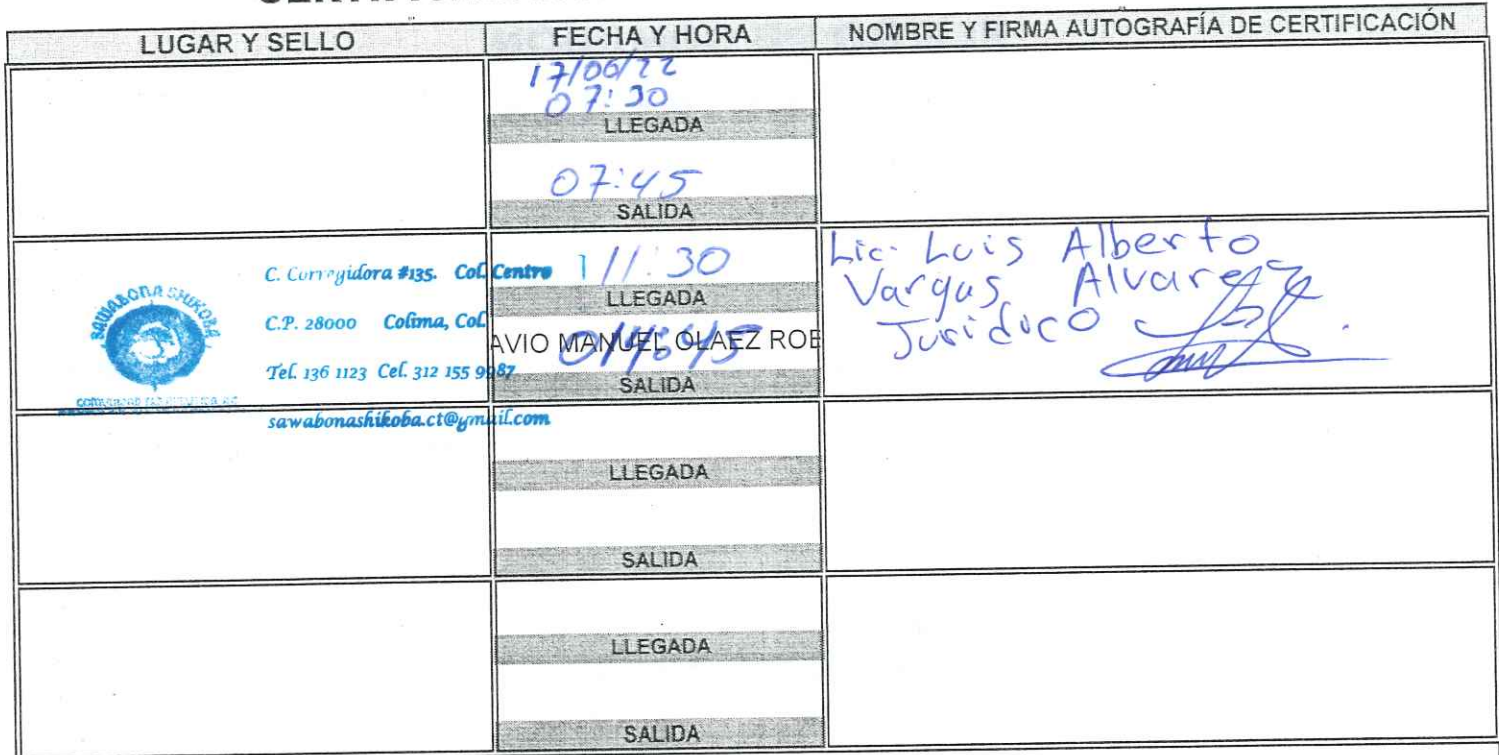 LUGAR Y SELLO
FECHA Y HORA
NOMBRE Y FIRMA AUTOGRAFÍA DE CERTIFICACIÓN
17/06/22
07:30
LLEGADA
07:45
SALIDA
SAWABONA SHIKOBA
C. Corregidora #135. Col. Centro
C.P. 28000 Colima, Col.
Tel. 136 1123 Cel. 312 155 9987
sawabonashikoba.ct@gmail.com
11:30
LLEGADA
AVIO MANUEL OLAEZ ROB
SALIDA
Lic. Luis Alberto
Vargas Alvarez
Juridico
LLEGADA
SALIDA
LLEGADA
SALIDA